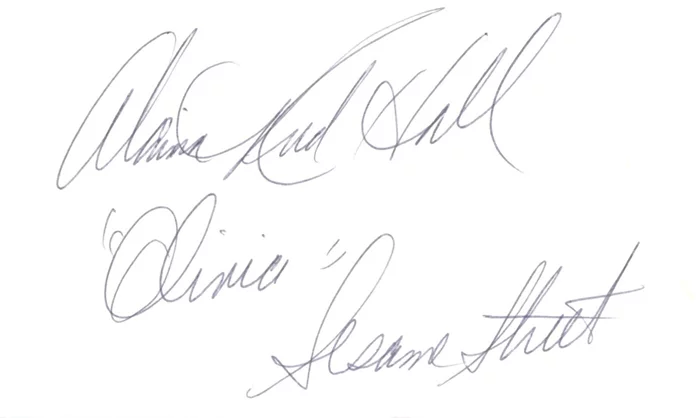 Alaina Reed Hall
"Olivia"
Sesame Street